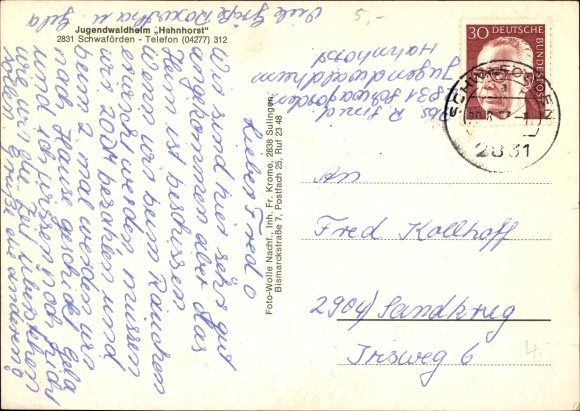 Jugendwaldheim „Hahnhorst"
2831 Schwaförden - Telefon (04277) 312
Lieber Fred
Wir sind hier sehr gut
angekommen aber das
Heim ist beschissen
Wenn wir beim Rauchen
erwischt werden müssen
wir 20 DM bezahlen und
beim 2 mal werden wir
nach Hause geschickt Gela
und ich wissen noch nicht
wie wir die Zeit überstehen
Grüße die anderen
Viele Grüße und Gela
Foto-Wolle Nachf. Inh. Fr. Krome, 2838 Sulingen,
Bismarckstraße 7, Postfach 25, Ruf 23 48
2831 Schwaförden
Jugendwaldheim
Hahnhorst
5,-
30 DEUTSCHE
BUNDESPOST
SCHWAFÖRDEN
2831
An
Fred Kollhoff
2904 Sandkrug
Irisweg 6
4.-